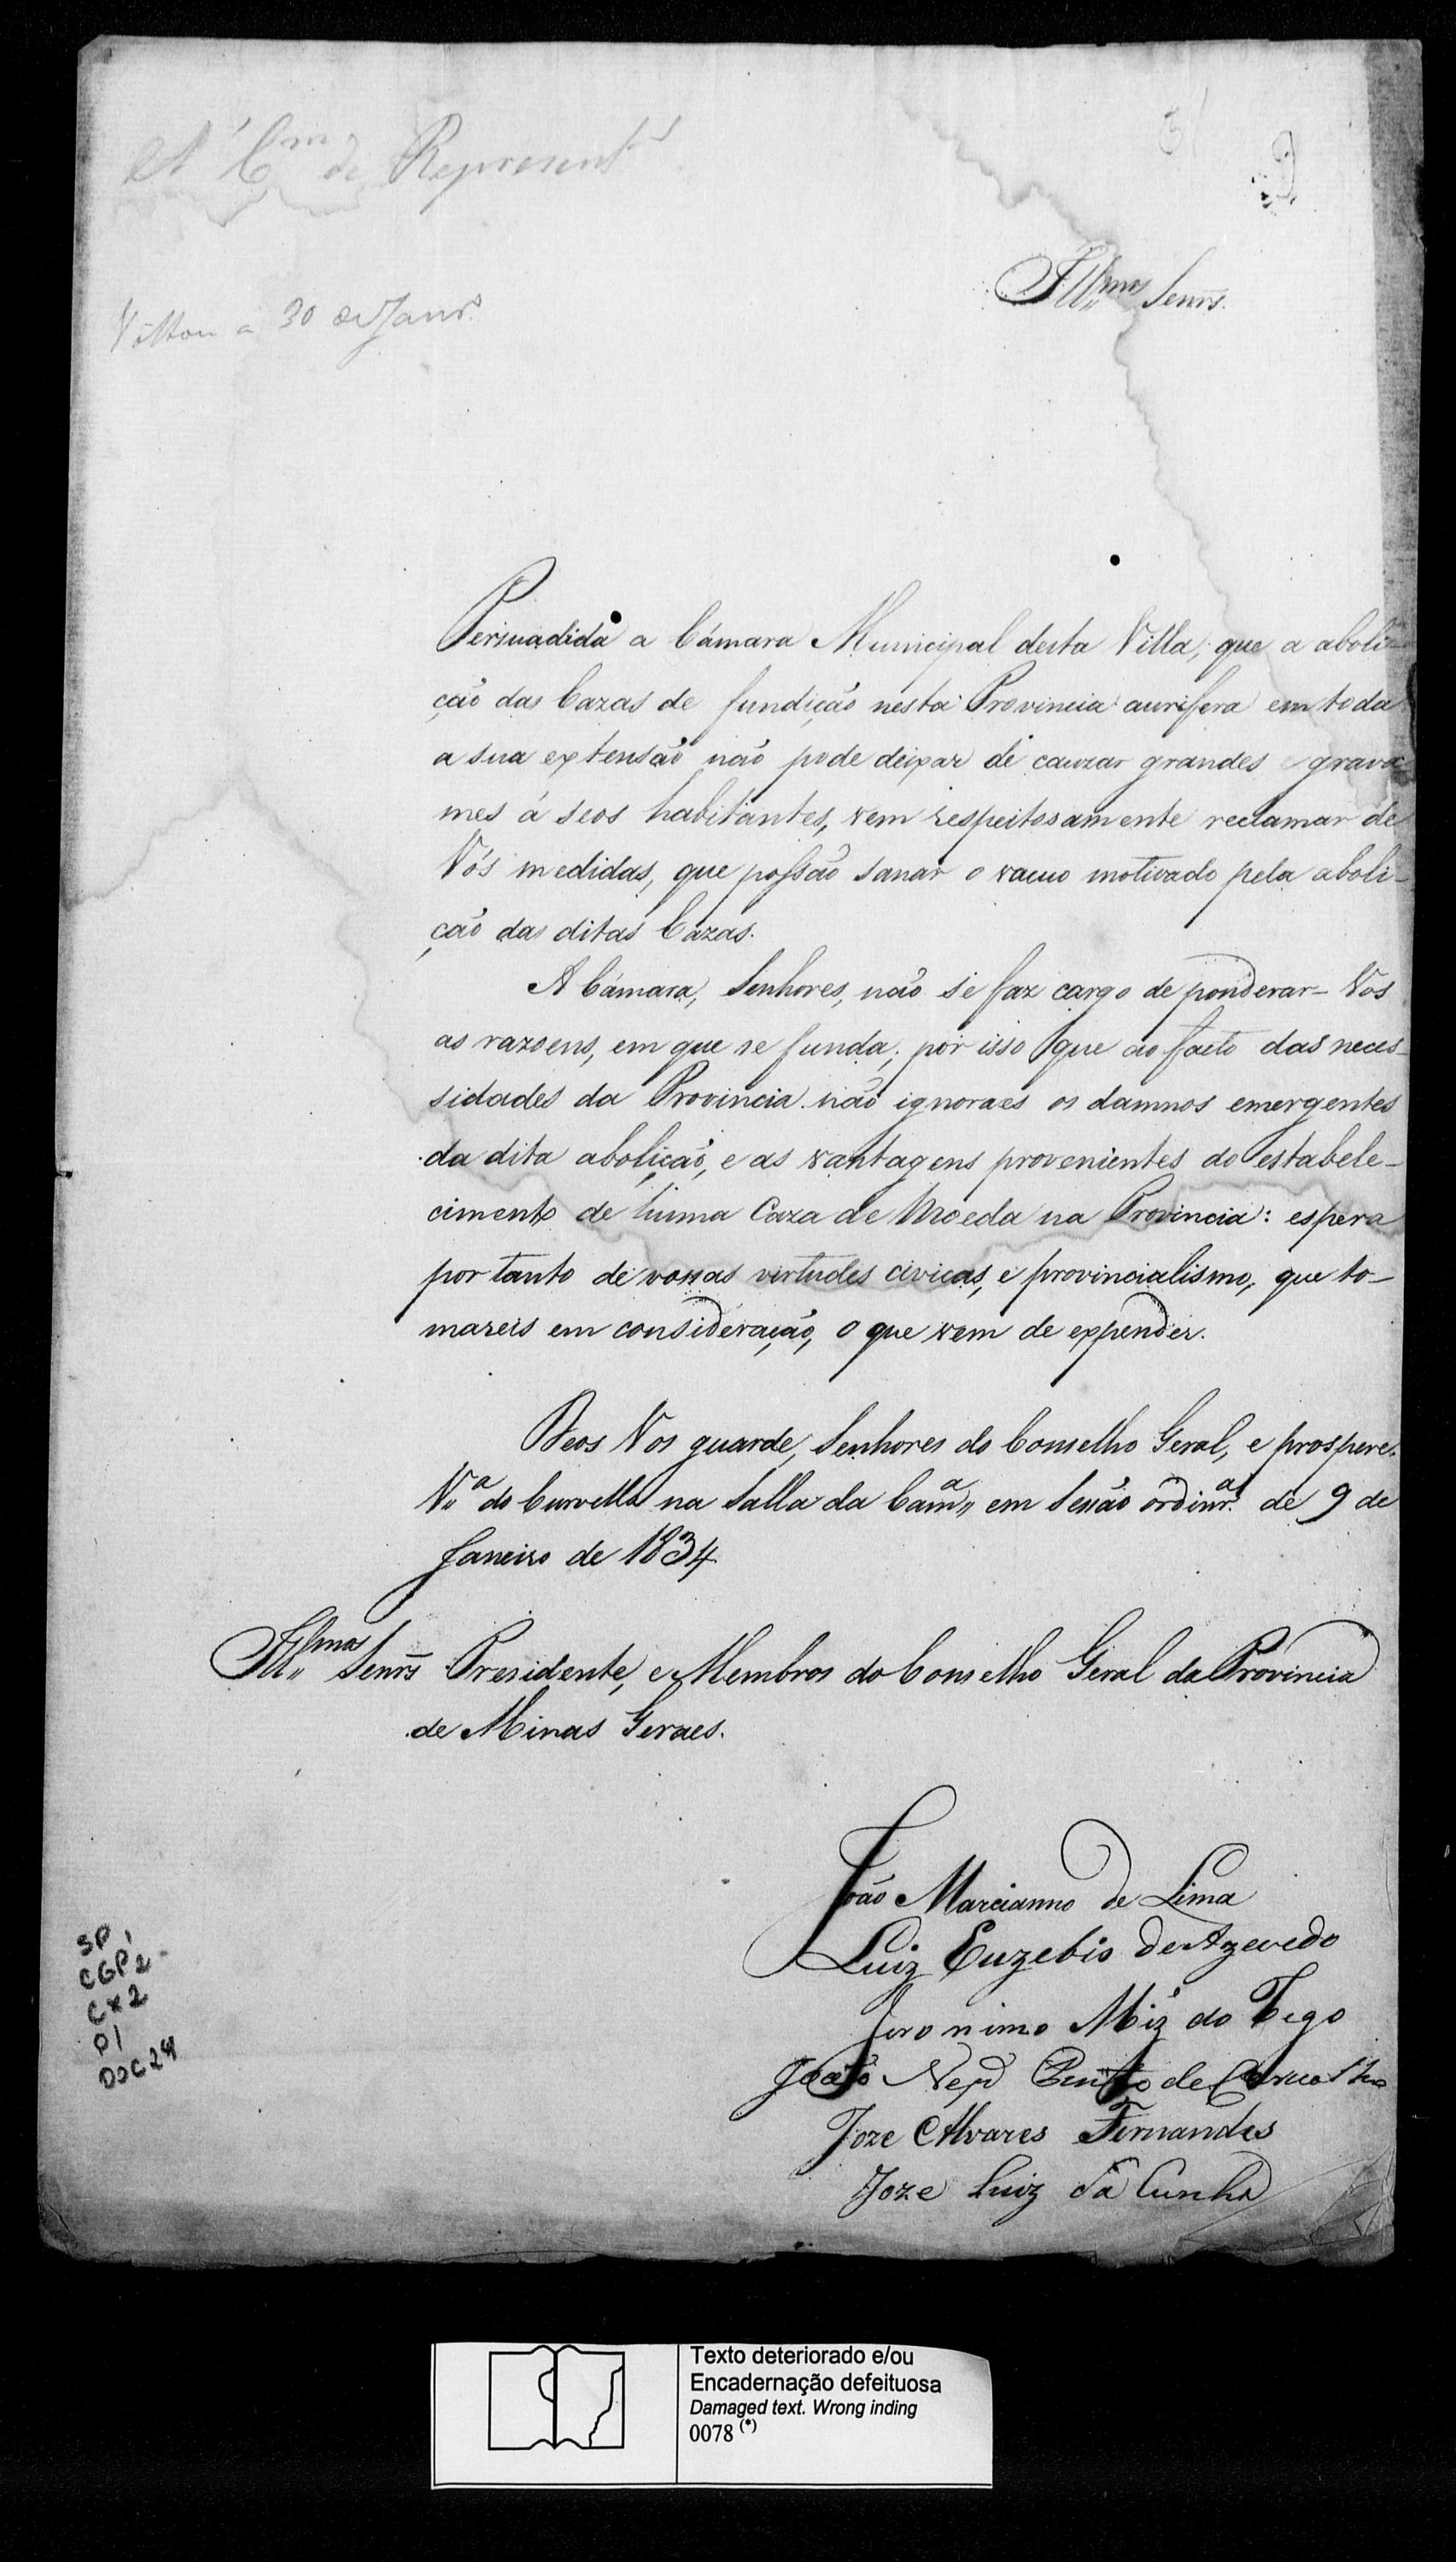 A' Com.m de Represent.s
9
Voltou a 30 de Janr.o
Ill.mos Senrs.
Persuadida a Câmara Municipal desta Villa, que a aboli-
ção das Cazas de fundição nesta Provincia aurifera em toda
a sua extensão não pode deixar de cauzar grandes grava
mes á seos habitantes, vem respeitosamente reclamar de
Vós medidas, que possão sanar o vacuo motivado pela aboli-
ção das ditas Cazas.
A Câmara, Senhores, não se faz cargo de ponderar-Vos
as razoens, em que se funda; por isso que ao facto das neces-
sidades da Provincia não ignoraes os damnos emergentes
da dita abolição, e as vantagens provenientes do estabele-
cimento de huma Caza de Moeda na Provincia: espera
por tanto de vossas virtudes civicas, e provincialismo, que to-
mareis em consideração, o que vem de expender.
Deos Vos guarde, Senhores do Conselho Geral, e prospere.
V.a do Curvello na Salla da Cam.a em Sessão ordinr.a de 9 de
Janeiro de 1834
Ill.mos Senrs Presidente, e Membros do Conselho Geral da Provincia
de Minas Geraes.
João Marcianno de Lima
Luiz Euzebio de Azevedo
Jeronimo Miz do Rego
João Nepo Pinto de Carvalho
Joze Alvares Fernandes
Joze Luiz da Cunha
SP
CGP 2
CX 2
P1
DOC 24
Texto deteriorado e/ou
Encadernação defeituosa
Damaged text. Wrong inding
0078 (*)